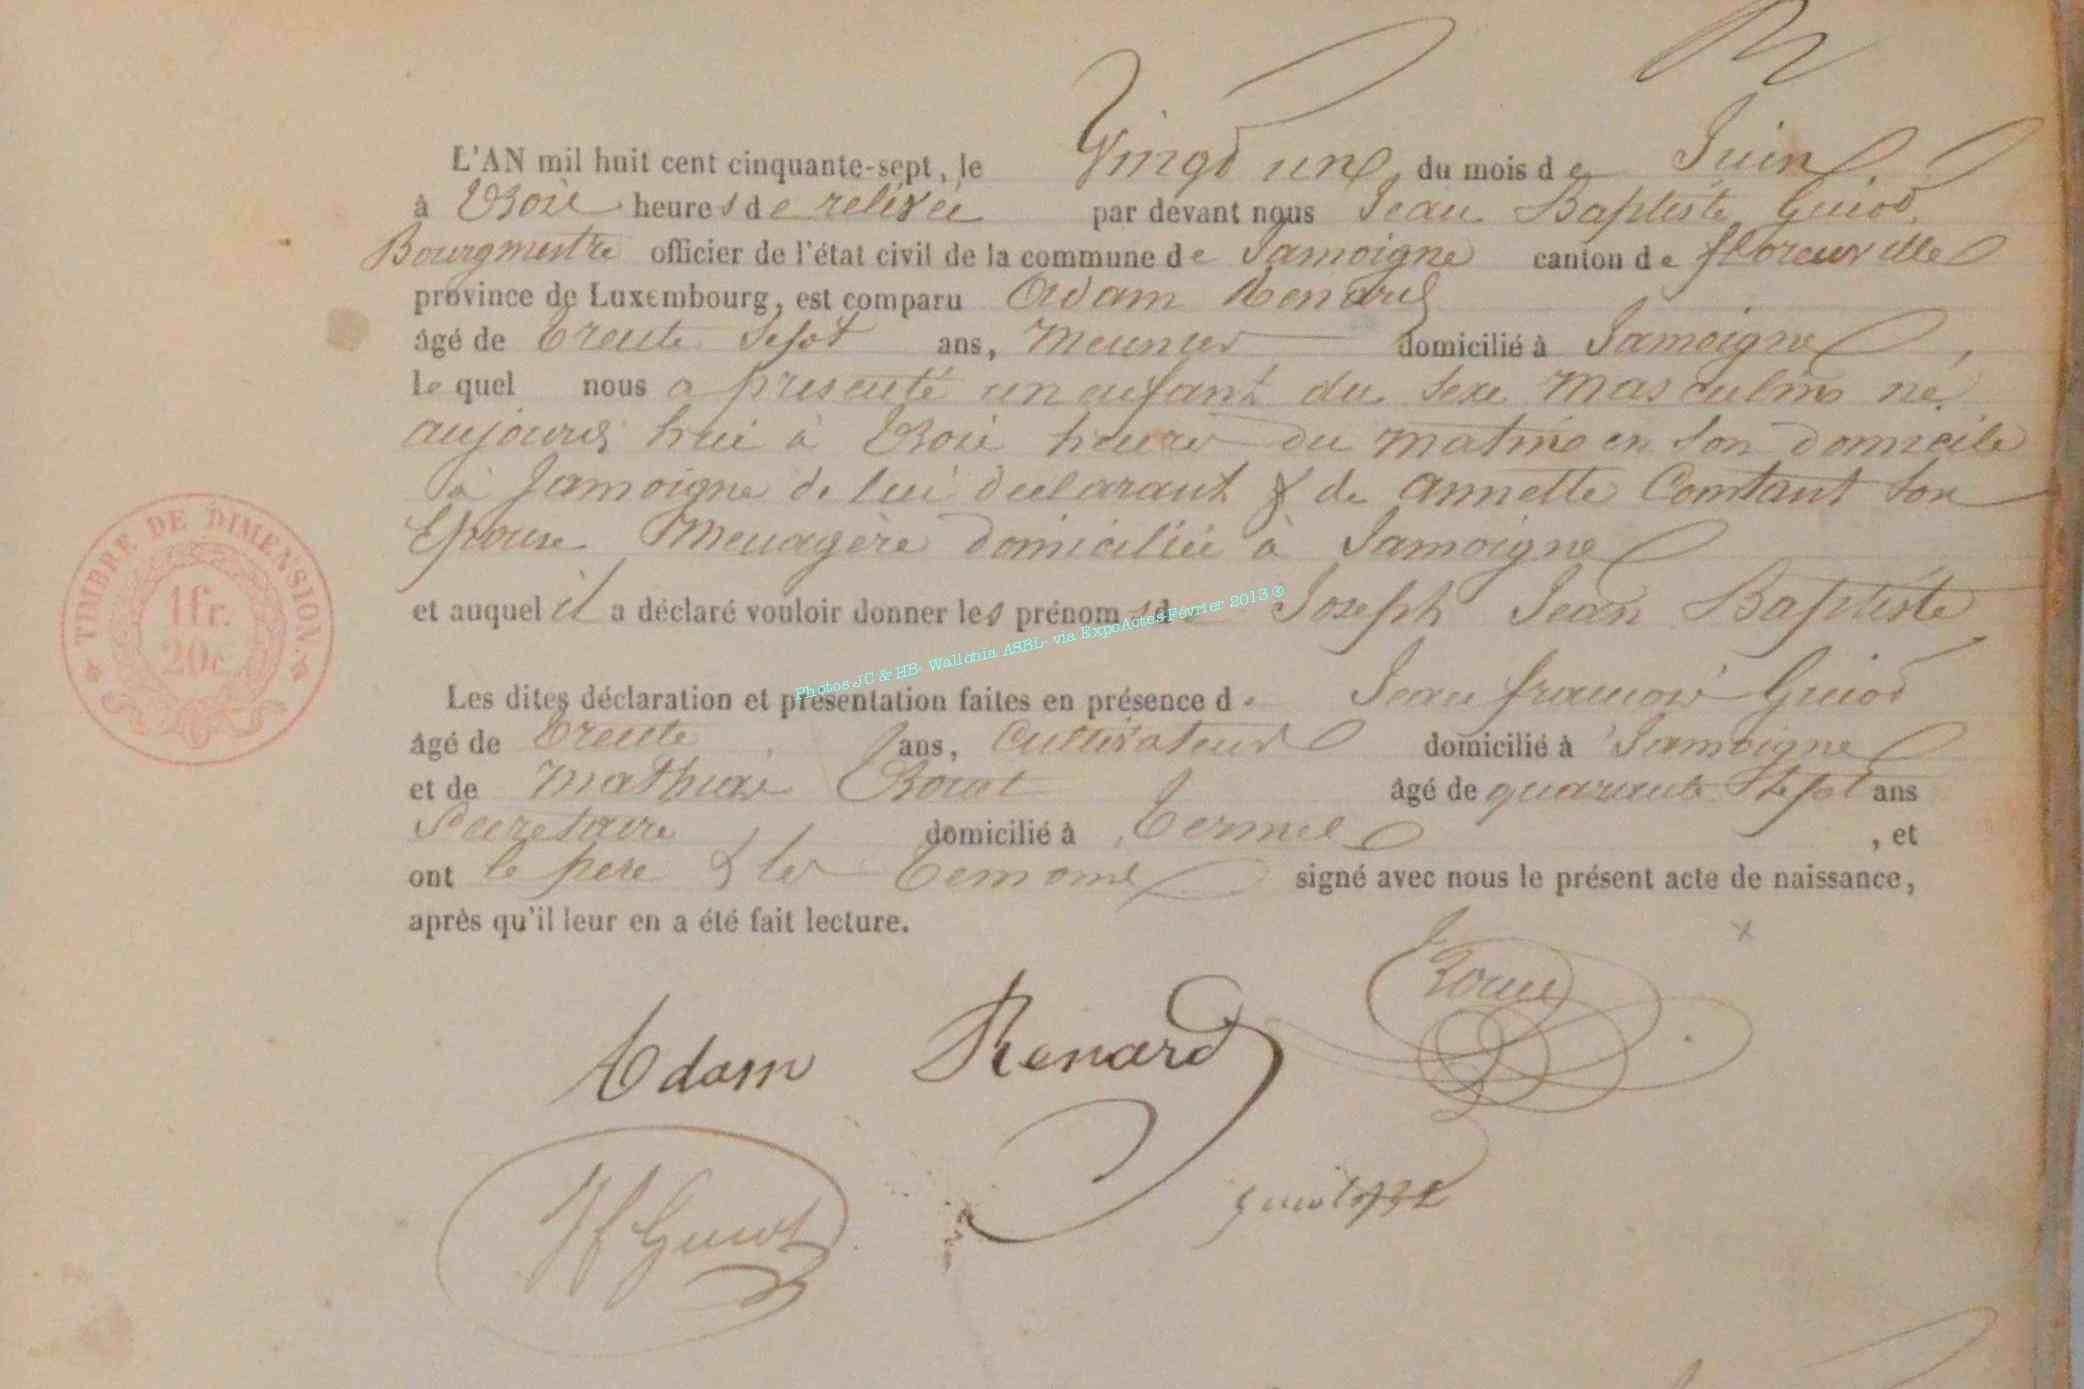 L'AN mil huit cent cinquante-sept, le Vingt un du mois de Juin
à trois heures de relevée par devant nous Jean Baptiste Guiot
Bourgmestre officier de l'état civil de la commune de Jamoigne canton de florenville
province de Luxembourg, est comparu Adam Renard
âgé de trente sept ans, Meunier domicilié à Jamoigne,
le quel nous a présenté un enfant du sexe masculin né
aujourd hui à trois heures du matin en son domicile
à Jamoigne de lui déclarant & de annette Comtant son
Epouse Menagère domiciliée à Jamoigne
et auquel il a déclaré vouloir donner les prénoms de Joseph Jean Baptiste
Photos JC & HB- Wallonia ASBL- via ExpoActes Février 2013 ©
Les dites déclaration et présentation faites en présence de Jean francois Guiot
âgé de trente ans, Cultivateur domicilié à Jamoigne
et de Mathias âgé de quarante Sept ans
Secretaire domicilié à Termes, et
ont le père & les temoins signé avec nous le présent acte de naissance,
après qu'il leur en a été fait lecture.
TIMBRE DE DIMENSION.
1fr.
20c
Adam Renard
Jf Guiot